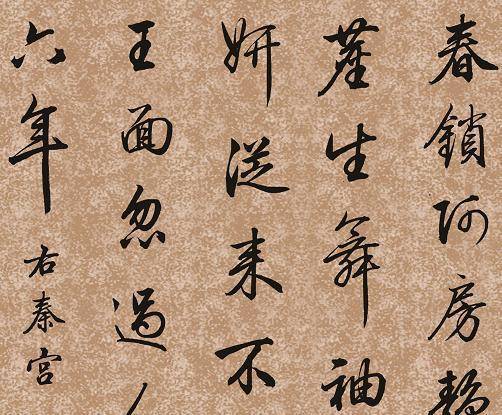 春鎖阿房
塵生舞袖
妍從来不
王面忽過
六年
右秦宮